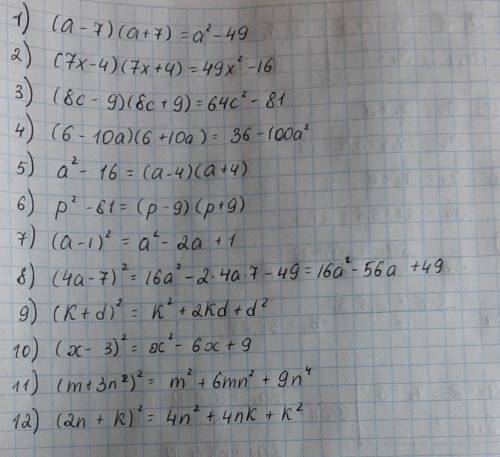 1) (a-7)(a+7) = a² - 49
2) (7x-4)(7x+4) = 49x² - 16
3) (8c - 9)(8c + 9) = 64c² - 81
4) (6 - 10a)(6 + 10a) = 36 - 100a²
5) a² - 16 = (a-4)(a+4)
6) p² - 81 = (p - 9)(p + 9)
7) (a-1)² = a² - 2a + 1
8) (4a - 7)² = 16a² - 2·4a·7 - 49 = 16a² - 56a + 49
9) (k + d)² = k² + 2kd + d²
10) (x - 3)² = x² - 6x + 9
11) (m + 3n²)² = m² + 6mn² + 9n⁴
12) (2n + k)² = 4n² + 4nk + k²